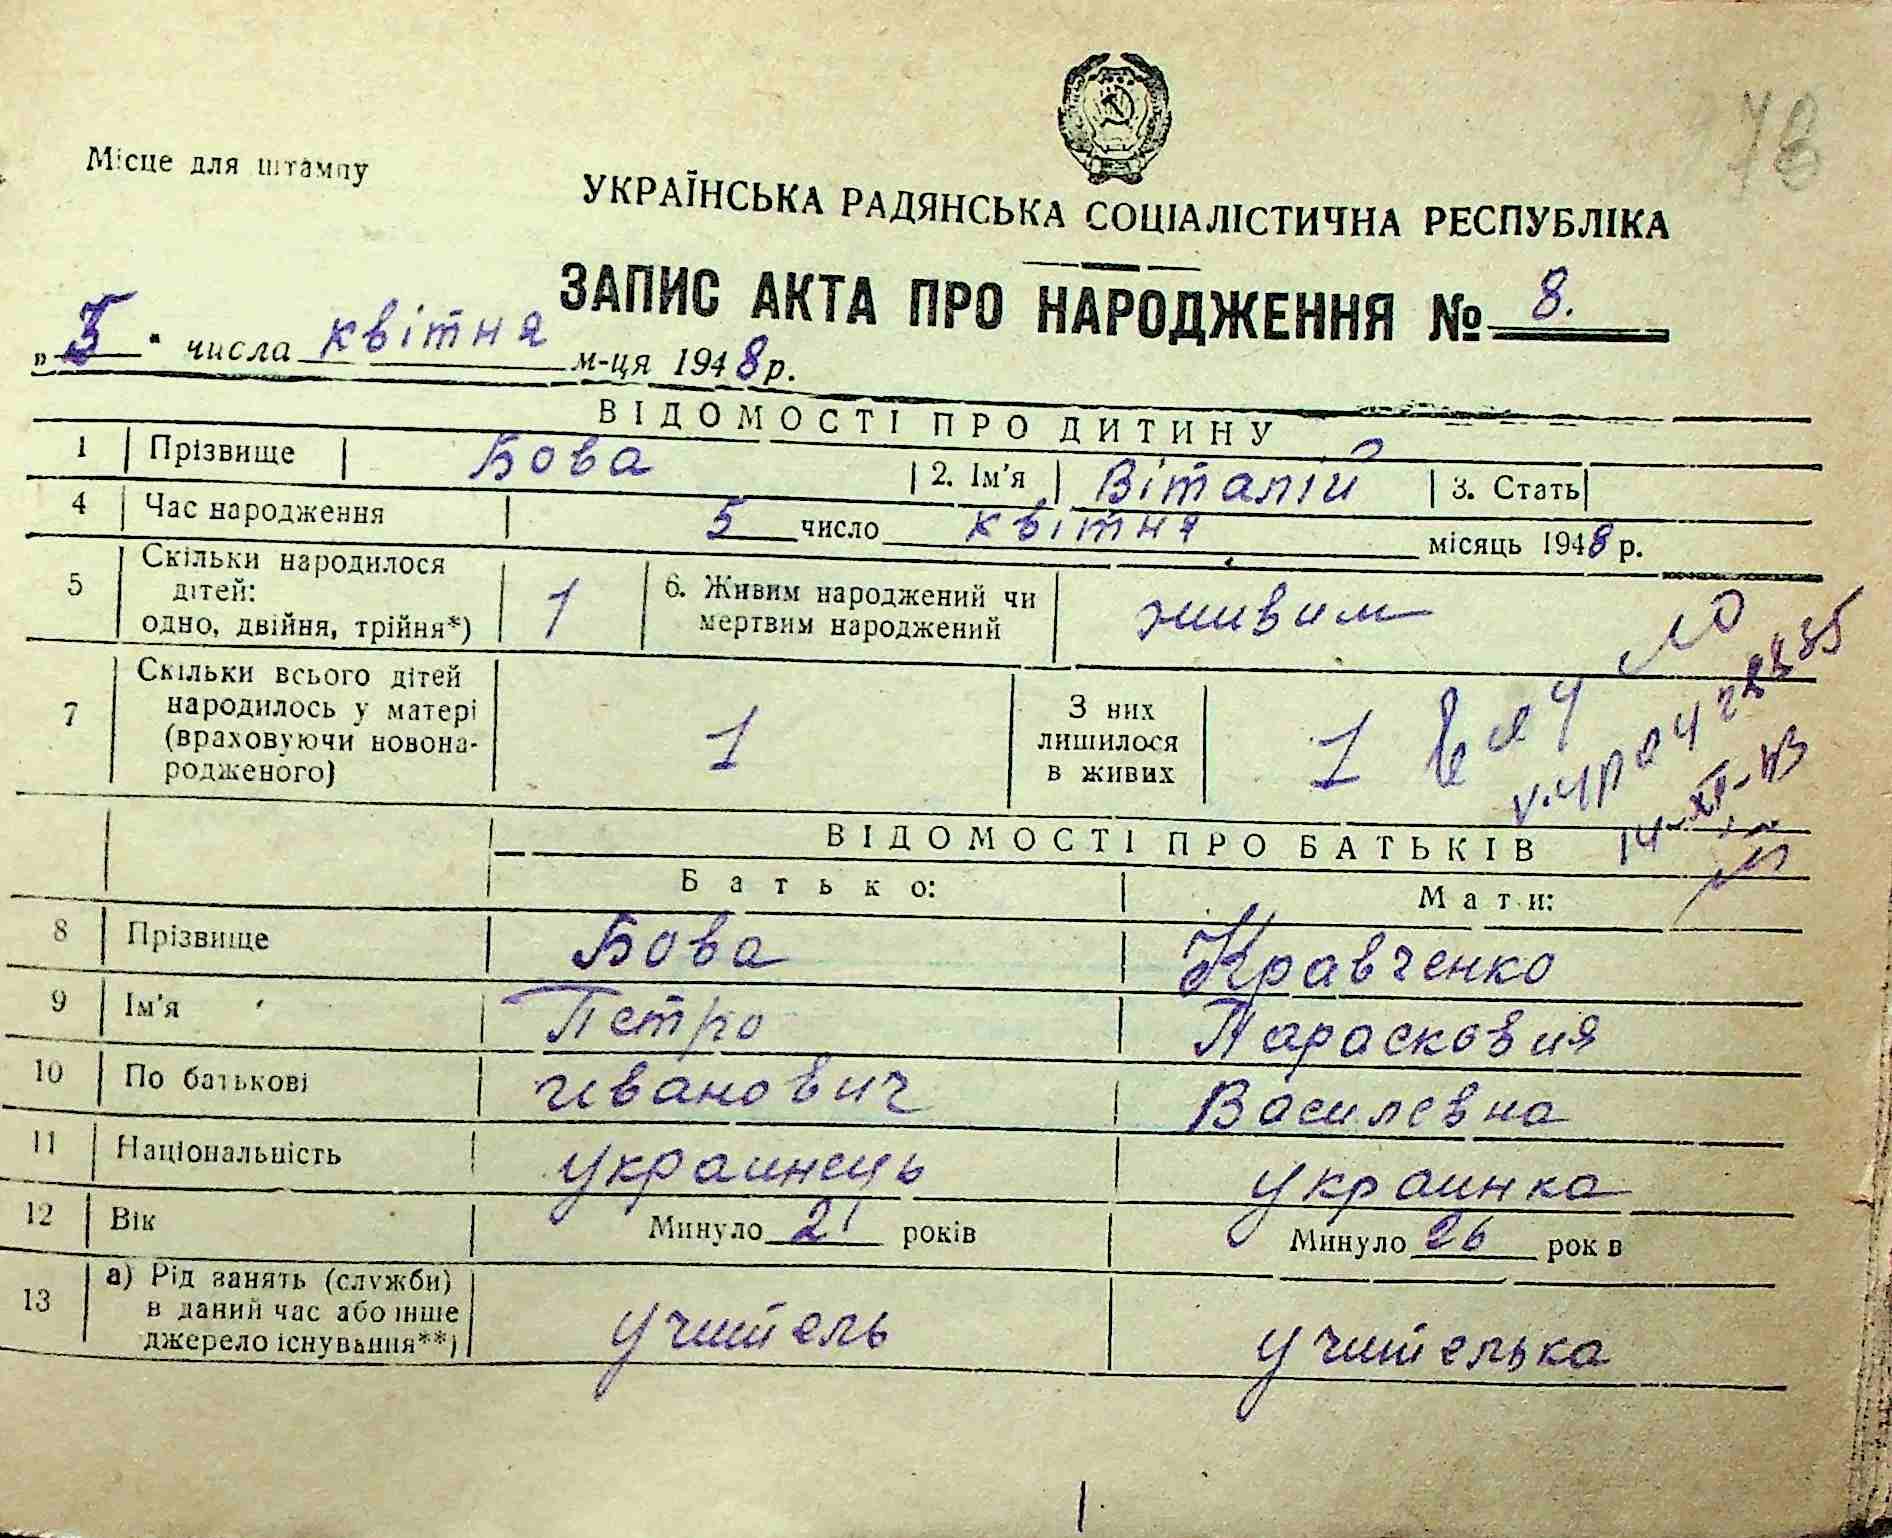 78
Місце для штампу
УКРАЇНСЬКА РАДЯНСЬКА СОЦІАЛІСТИЧНА РЕСПУБЛІКА
ЗАПИС АКТА ПРО НАРОДЖЕННЯ № 8.
„5" числа квітня м-ця 1948 р.
ВІДОМОСТІ ПРО ДИТИНУ
1 Прізвище Бова 2. Ім'я Віталій 3. Стать
4 Час народження 5 число квітня місяць 1948 р.
5 Скільки народилося
дітей:
одно, двійня, трійня*) 1 6. Живим народжений чи
мертвим народжений живим
7 Скільки всього дітей
народилось у матері
(враховуючи новона-
родженого) 1 З них
лишилося
в живих 1
14-XII-73
ВІДОМОСТІ ПРО БАТЬКІВ
Батько: Мати:
8 Прізвище Бова Кравченко
9 Ім'я Петро Парасковия
10 По батькові Иванович Василевна
11 Національність украинець украинка
12 Вік Минуло 21 років Минуло 26 рок в
13 а) Рід занять (служби)
в даний час або інше
джерело існування**) учитель учителька